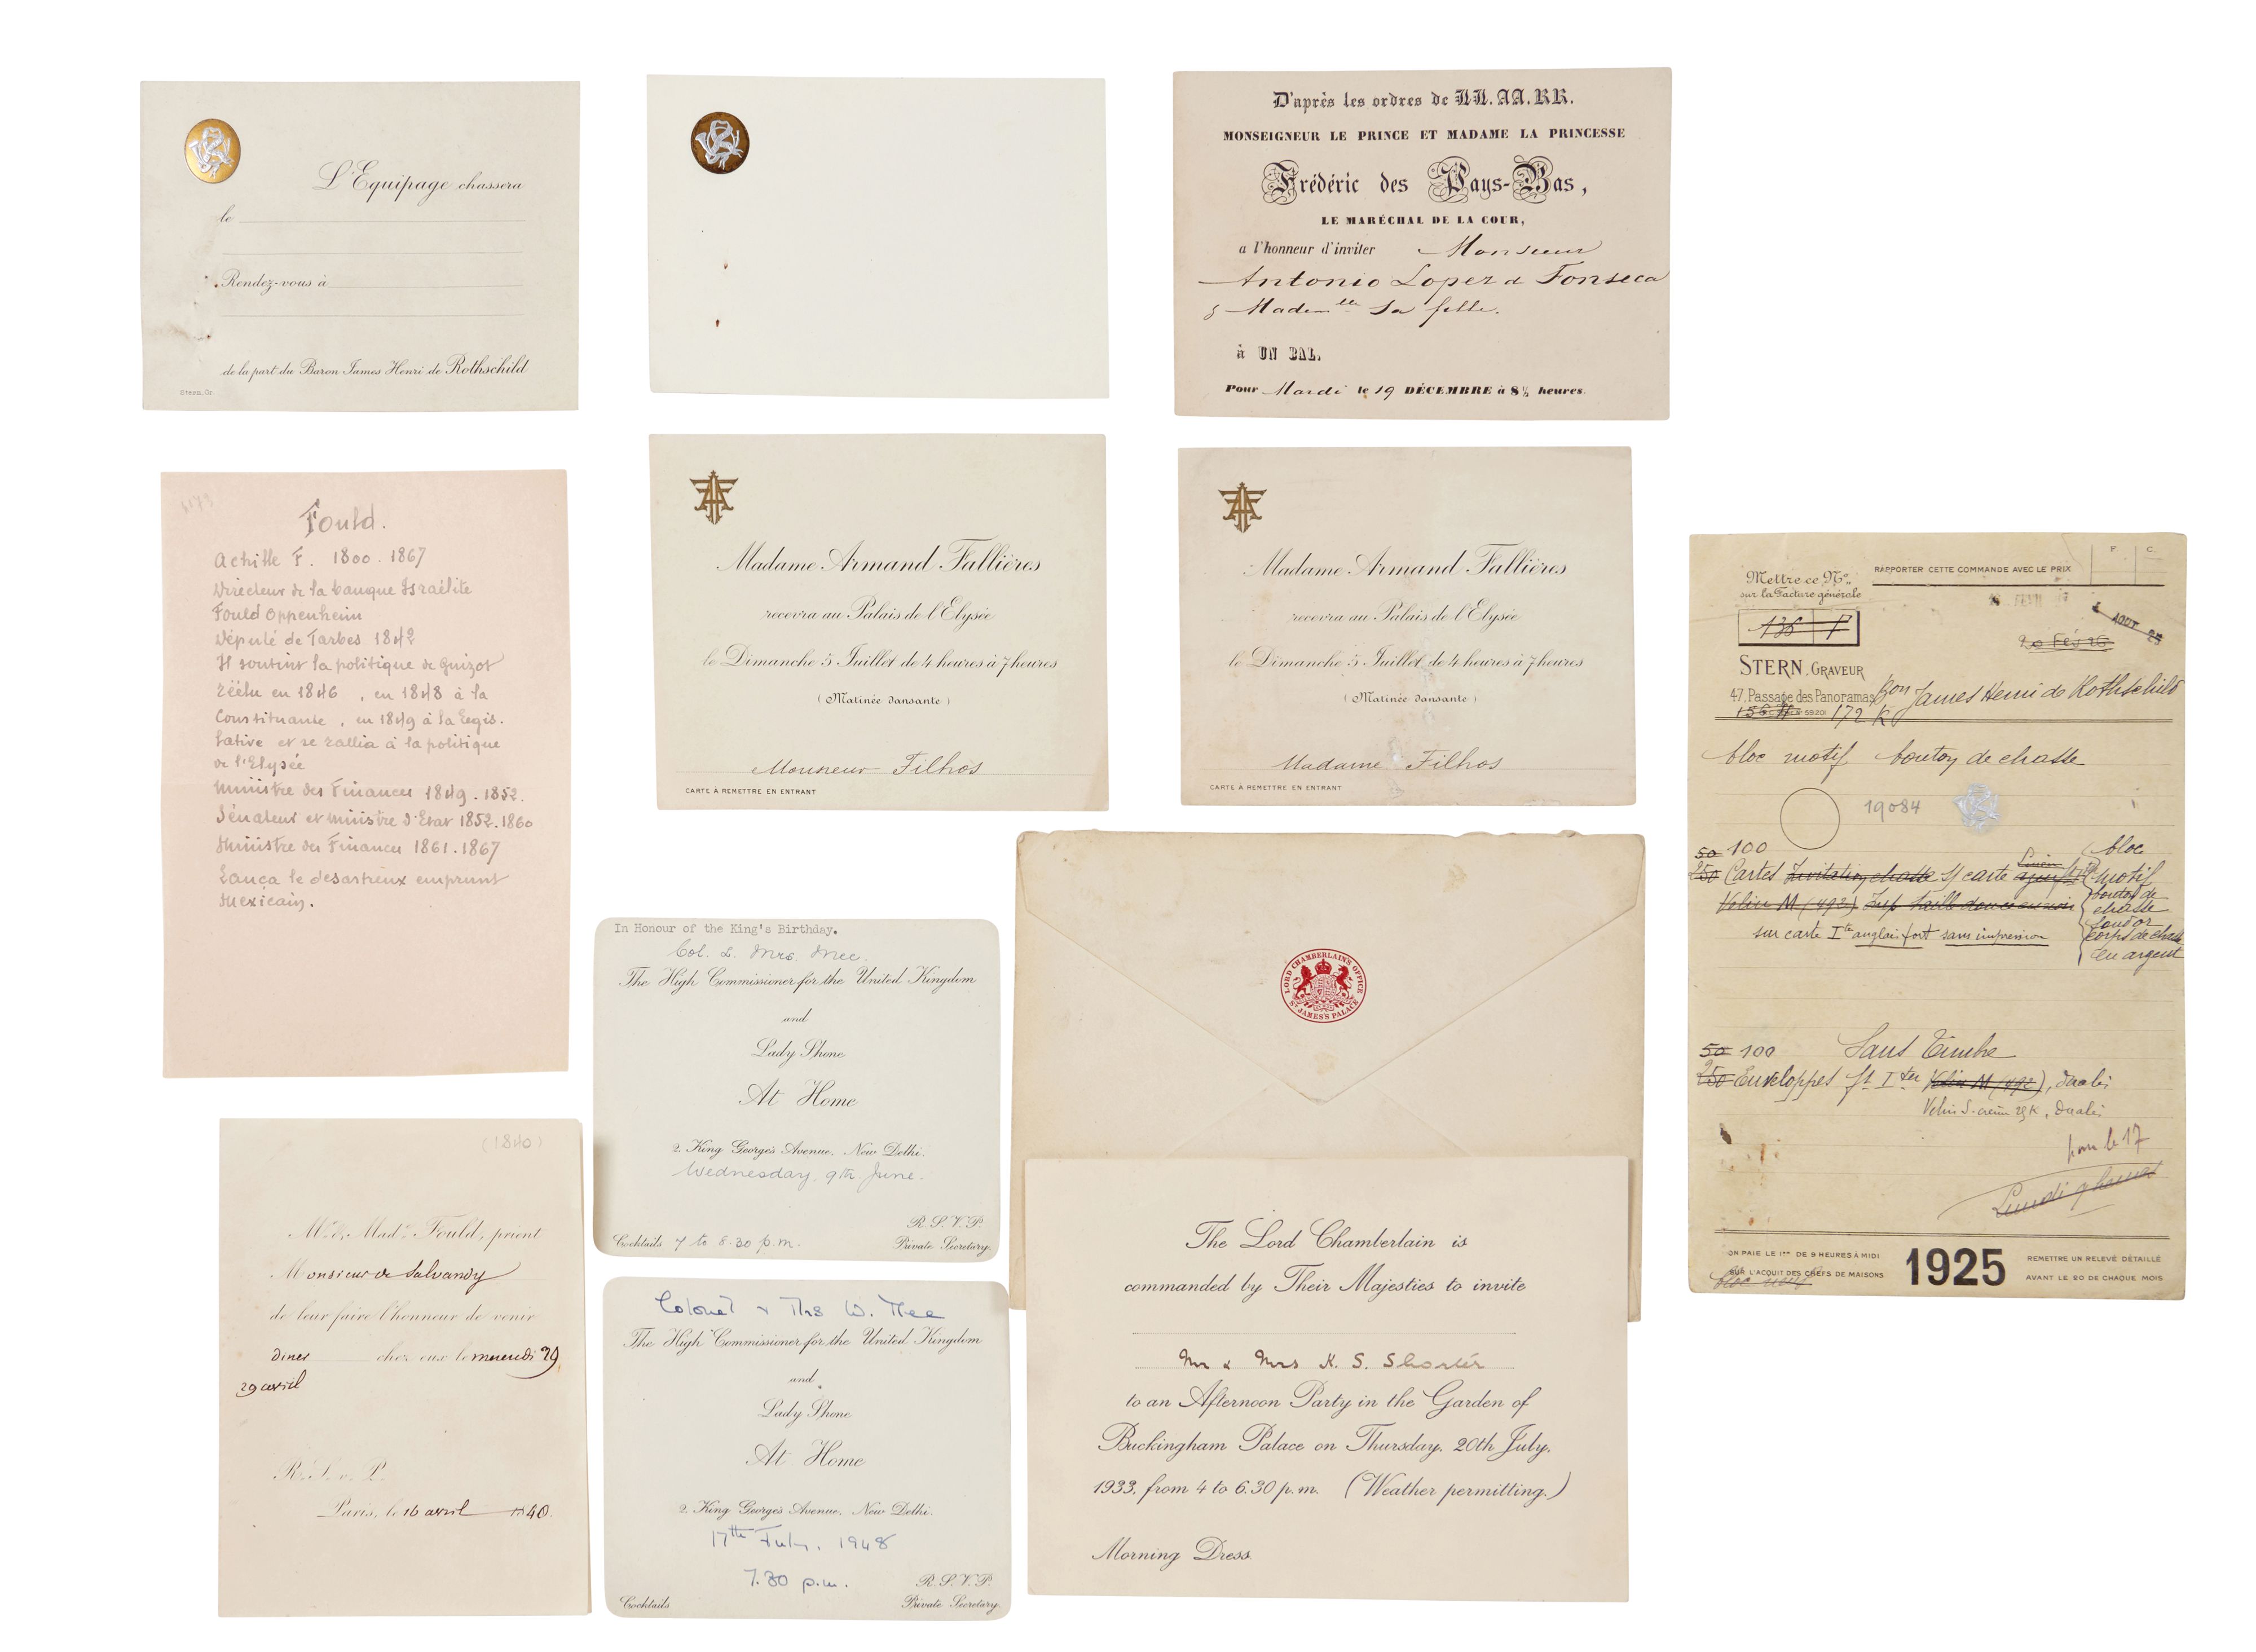 L'Equipage chassera
le
Rendez-vous à
de la part du Baron James Henri de Rothschild
Stern. Gr.
D'après les ordres de LL. AA. RR.
MONSEIGNEUR LE PRINCE ET MADAME LA PRINCESSE
Frédéric des Pays-Bas,
LE MARÉCHAL DE LA COUR,
a l'honneur d'inviter Monsieur
Antonio Lopez d Fonseca
& Madem lle Sa fille.
à UN BAL.
Pour Mardi le 19 DÉCEMBRE à 8½ heures.
Fould.
Achille F. 1800. 1867
Directeur de la banque Israélite
Fould Oppenheim
Député de Tarbes 1842
Il soutint la politique de Guizot
réélu en 1846 , en 1848 à la
Constituante , en 1849 à la Légis.
lative et se rallia à la politique
de l'Elysée
Ministre des Finances 1849. 1852.
Sénateur et ministre d'Etat 1852. 1860
Ministre des Finances 1861. 1867
Lança le désastreux emprunt
Mexicain.
AF
Madame Armand Fallières
recevra au Palais de l'Elysée
le Dimanche 5 Juillet de 4 heures à 7 heures
(Matinée dansante)
Monsieur Filhos
CARTE À REMETTRE EN ENTRANT
AF
Madame Armand Fallières
recevra au Palais de l'Elysée
le Dimanche 5 Juillet de 4 heures à 7 heures
(Matinée dansante)
Madame Filhos
CARTE À REMETTRE EN ENTRANT
F. C.
Mettre ce No.
sur la Facture générale
RAPPORTER CETTE COMMANDE AVEC LE PRIX
136 F
20 Fév 26
AOUT 25
STERN, GRAVEUR
47, Passage des Panoramas
Bon James Henri de Rothschild
172 K
bloc motif bouton de chasse
19084
50 100
250 Cartes Invitation chasse s/ carte
Velin M (492) Imp Taille douce en noir
sur carte Ite anglais fort sans impression
bloc
motif
bouton de
chasse
fond or
corps de chasse
en argent
50 100 Sans Timbre
250 Enveloppes ft Ites Velin M (492), doublés
Velin S. crême 29 K, doublés
pour le 17
Lundi 9
ON PAIE LE 1er DE 9 HEURES À MIDI
SUR L'ACQUIT DES CHEFS DE MAISONS
1925
REMETTRE UN RELEVÉ DÉTAILLÉ
AVANT LE 20 DE CHAQUE MOIS
In Honour of the King's Birthday.
Col. & Mrs. Mee.
The High Commissioner for the United Kingdom
and
Lady Shone
At Home
2, King George's Avenue, New Delhi.
Wednesday, 9th June.
R.S.V.P.
Cocktails 7 to 8.30 p.m.
Private Secretary.
LORD CHAMBERLAIN'S OFFICE
ST JAMES'S PALACE
(1840)
Mr. & Made. Fould, prient
Monsieur de Salvandy
de leur faire l'honneur de venir
diner chez eux le mercredi 29
29 avril
R. S. v. P.
Paris, le 16 avril 1840.
Colonel & Mrs W. Mee
The High Commissioner for the United Kingdom
and
Lady Shone
At Home
2, King George's Avenue, New Delhi.
17th July, 1948
7.30 p.m.
R.S.V.P.
Cocktails
Private Secretary.
The Lord Chamberlain is
commanded by Their Majesties to invite
Mr & Mrs K. S. Shorter
to an Afternoon Party in the Garden of
Buckingham Palace on Thursday, 20th July,
1933, from 4 to 6.30 p.m. (Weather permitting.)
Morning Dress